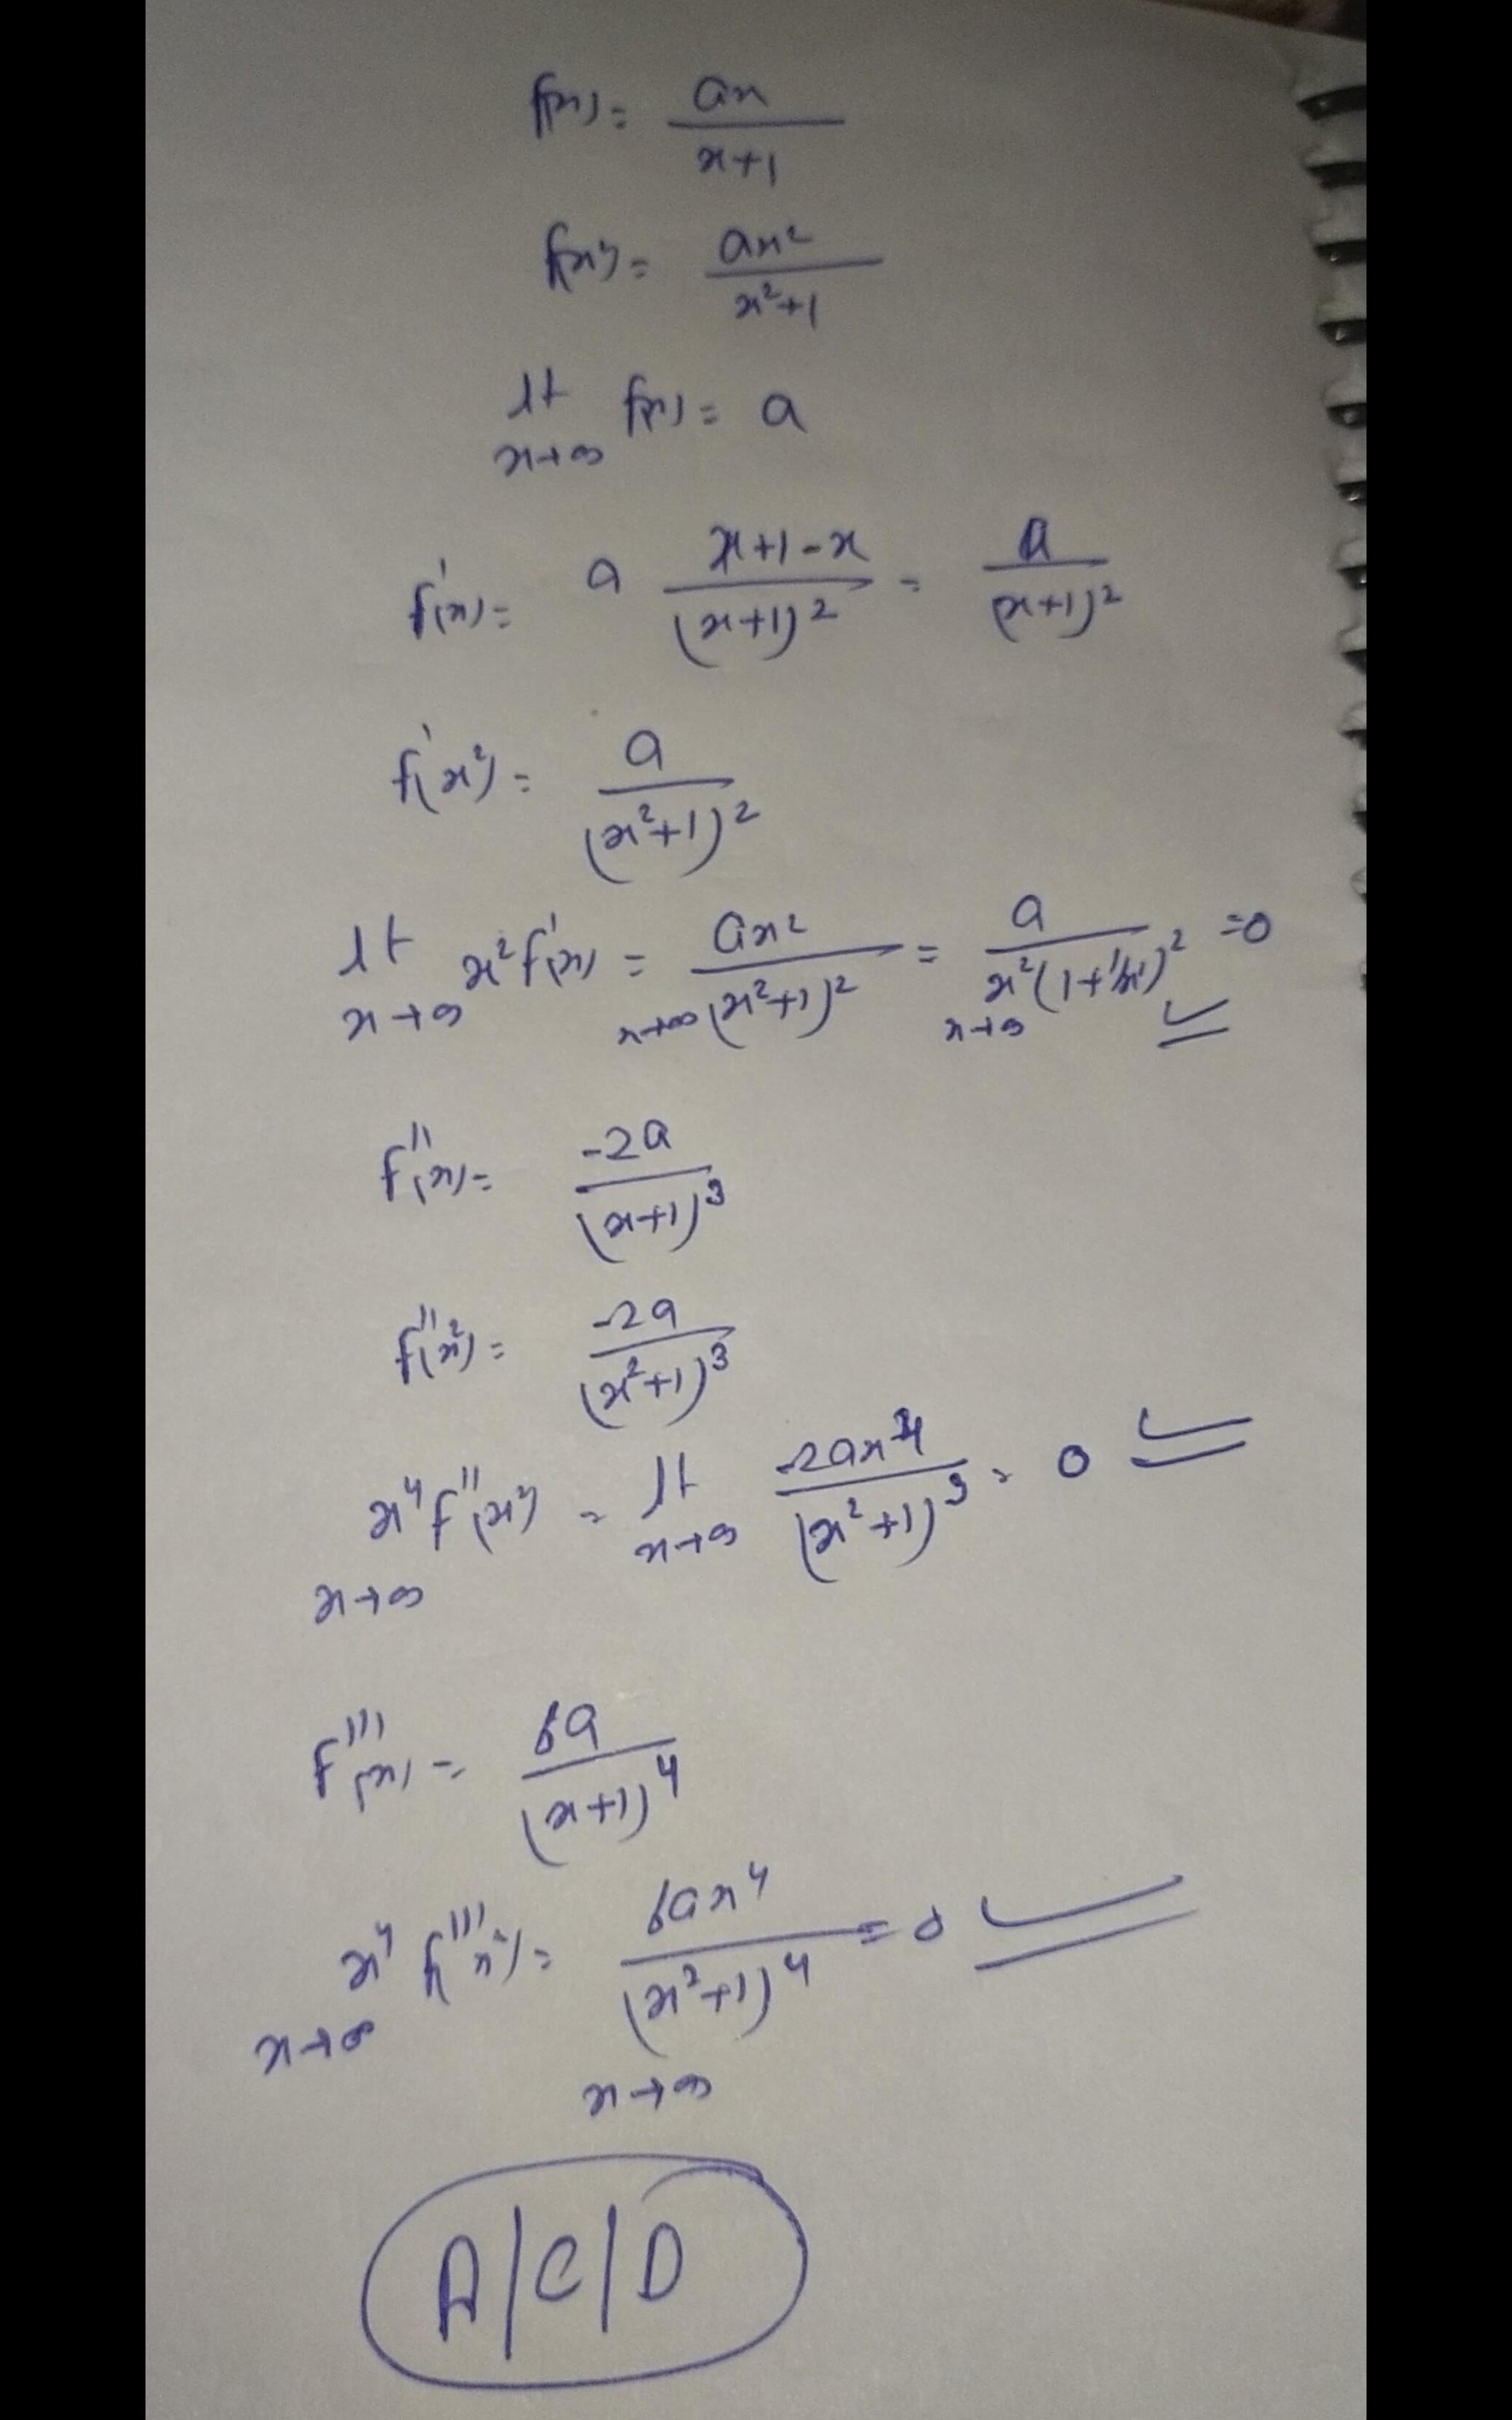 f(x) = ax / x+1
f(x²) = ax² / x²+1
lt x→∞ f(x²) = a
f'(x) = a x+1-x / (x+1)² = a / (x+1)²
f'(x²) = a / (x²+1)²
lt x→∞ x² f'(x) = ax² / x→∞ (x²+1)² = a / x→∞ x²(1+1/x²)² =0
f''(x) = -2a / (x+1)³
f''(x²) = -2a / (x²+1)³
x→∞ x⁴ f''(x²) = lt x→∞ -2ax⁴ / (x²+1)³ = 0
f'''(x) = 6a / (x+1)⁴
x→∞ x⁴ f'''(x²) = 6ax⁴ / (x²+1)⁴ x→∞ = 0
A/C/D